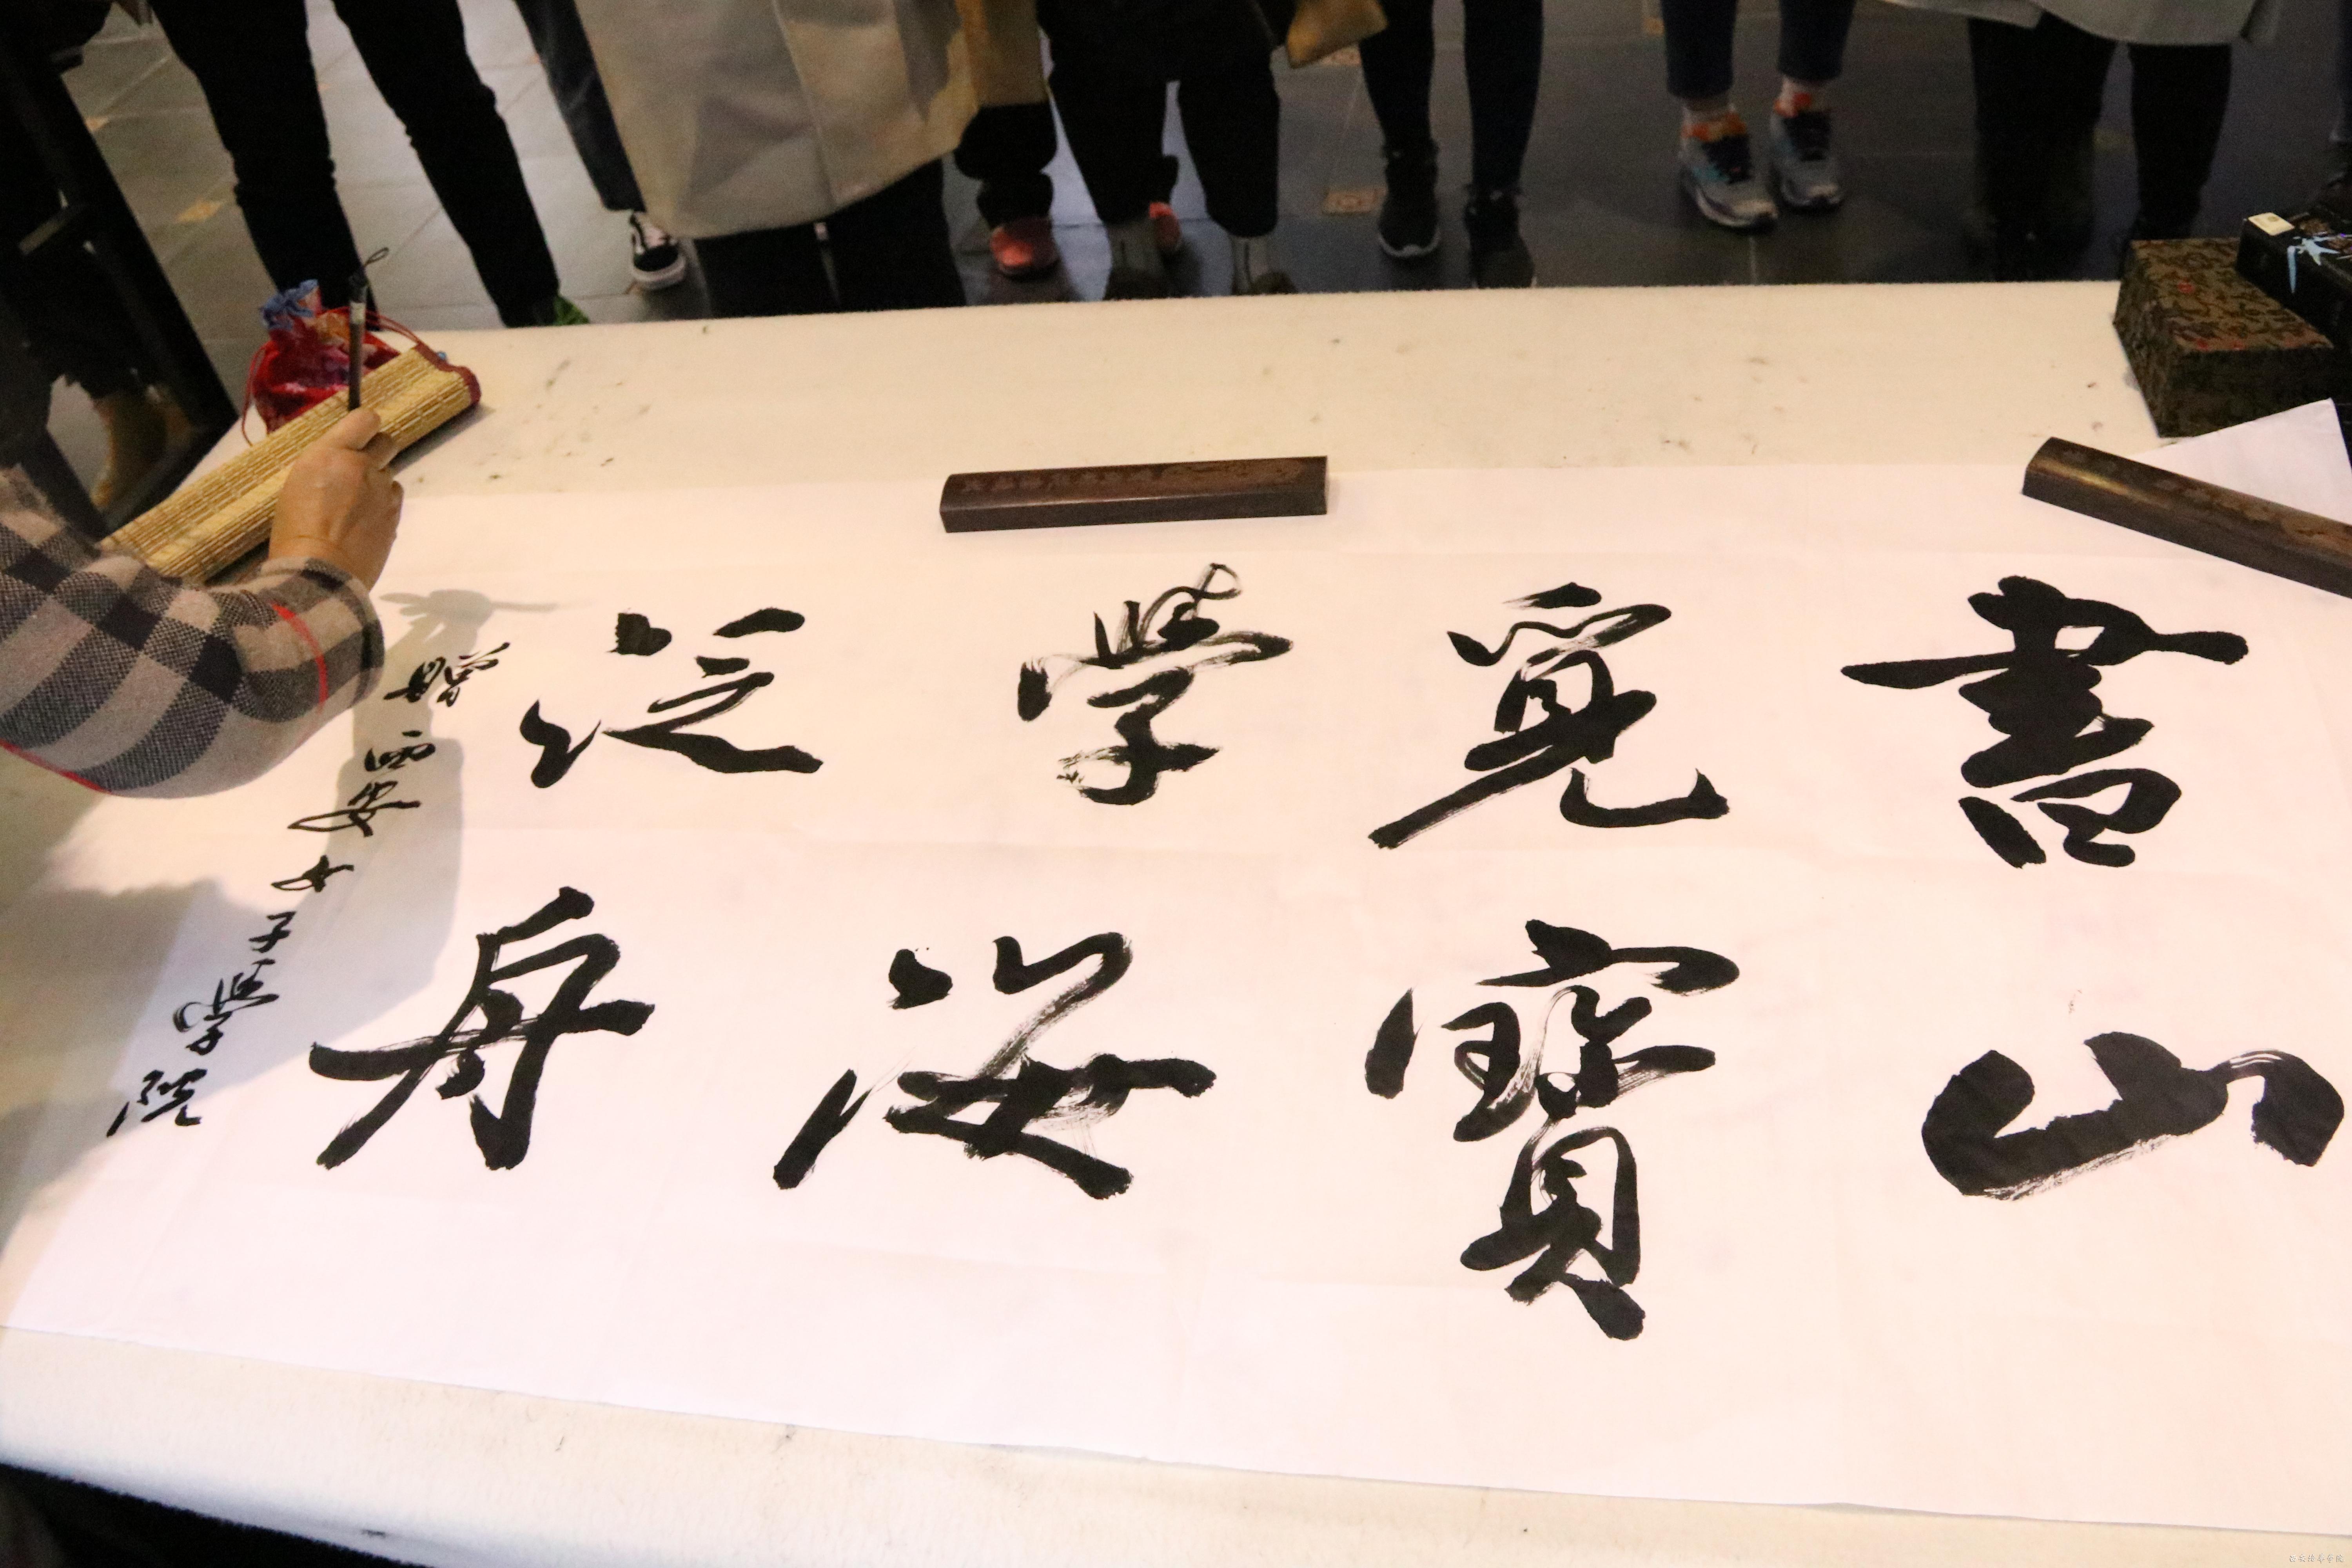 書山
覓寶
學海
泛舟
贈西安女子學院